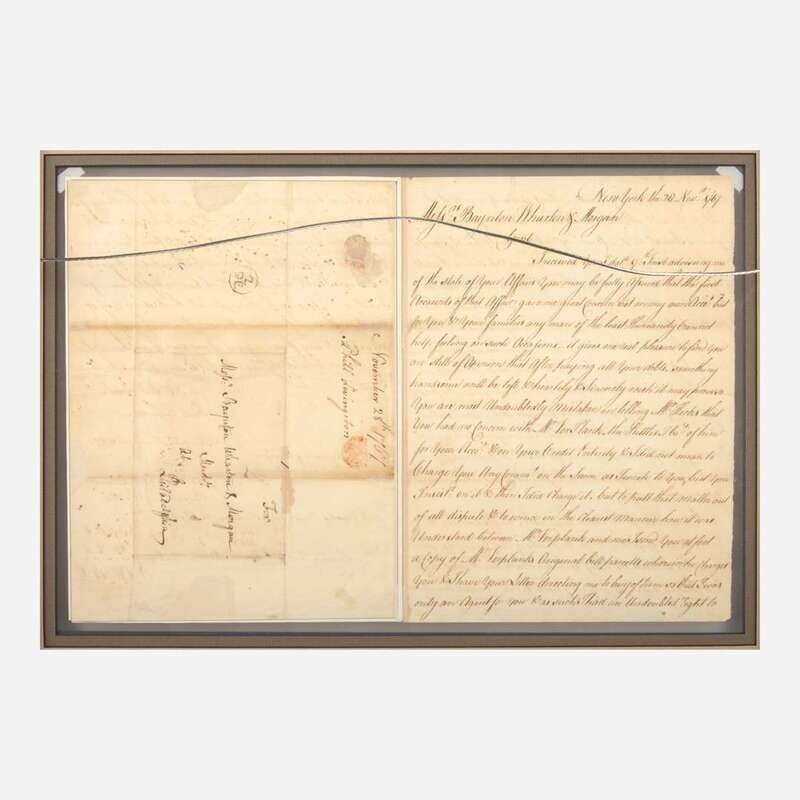 November 28th 1767
Phill Livingston
For
Messrs Baynton Wharton & Morgan
Merchts
Philadelphia
New York the 28 Novr 1767
Messrs Baynton Wharton & Morgan
Gent
I received your of advising me
of the State of Your Affairs You may be fully assured that the first
Accounts of that Affair gave me great Concern not on my own Acct but
for You & Your families any man of the least Humanity Cannot
help feeling on such Occasions it gives me vast pleasure to find You
are still of Opinion that After paying all Your debts something
handsome will be left I heartily & Sincerely wish it may prove so
You are most Undoubtedly Mistaken in telling Mr that
You had no Concern with Mr the bot of him
for Your Acct & on Your Credit Entirely & I did not mean to
Charge You Any on the Same as to You, but You
on it & then I did Charge it, but to put that matter out
of all dispute & to evince in the Clearest Manner how it was
Understood between Mr Verplank and me I send You at foot
a Copy of Mr Verplanks Original bill parcells wherein he Charges
You & I have Your Letter directing me to buy of him so that I was
only an Agent for You & as such I had an Undoubted right to